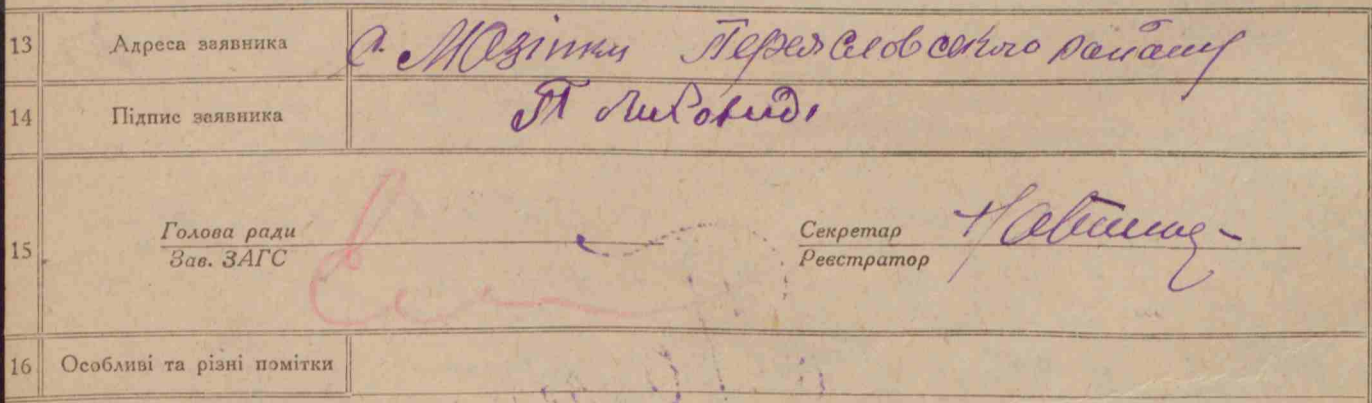 13 Адреса заявника с. Мазінки Переяславського району
14 Підпис заявника П Лиховид
15 Голова ради Секретар
Зав. ЗАГС Реєстратор
16 Особливі та різні помітки